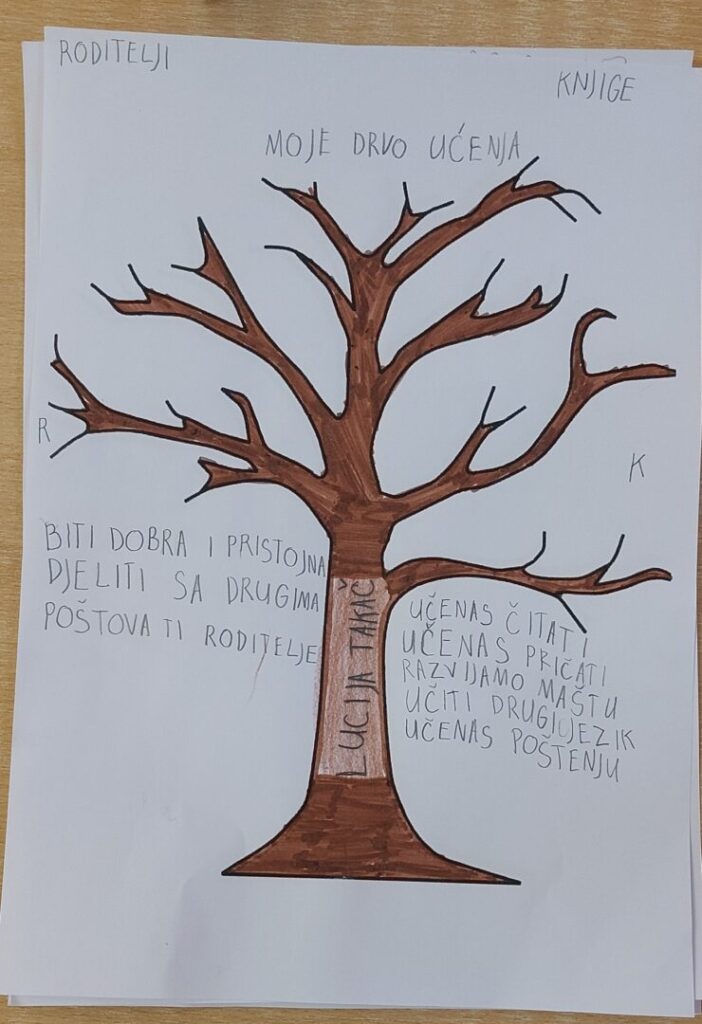 RODITELJI
KNJIGE
MOJE DRVO UĆENJA
R
K
BITI DOBRA I PRISTOJNA
DJELITI SA DRUGIMA
POŠTOVATI RODITELJE
LUCIJA TAKAČ
UČENAS ČITATI
UČENAS PRIČATI
RAZVIJAMO MAŠTU
UČITI DRUGIJEZIK
UČENAS POŠTENJU